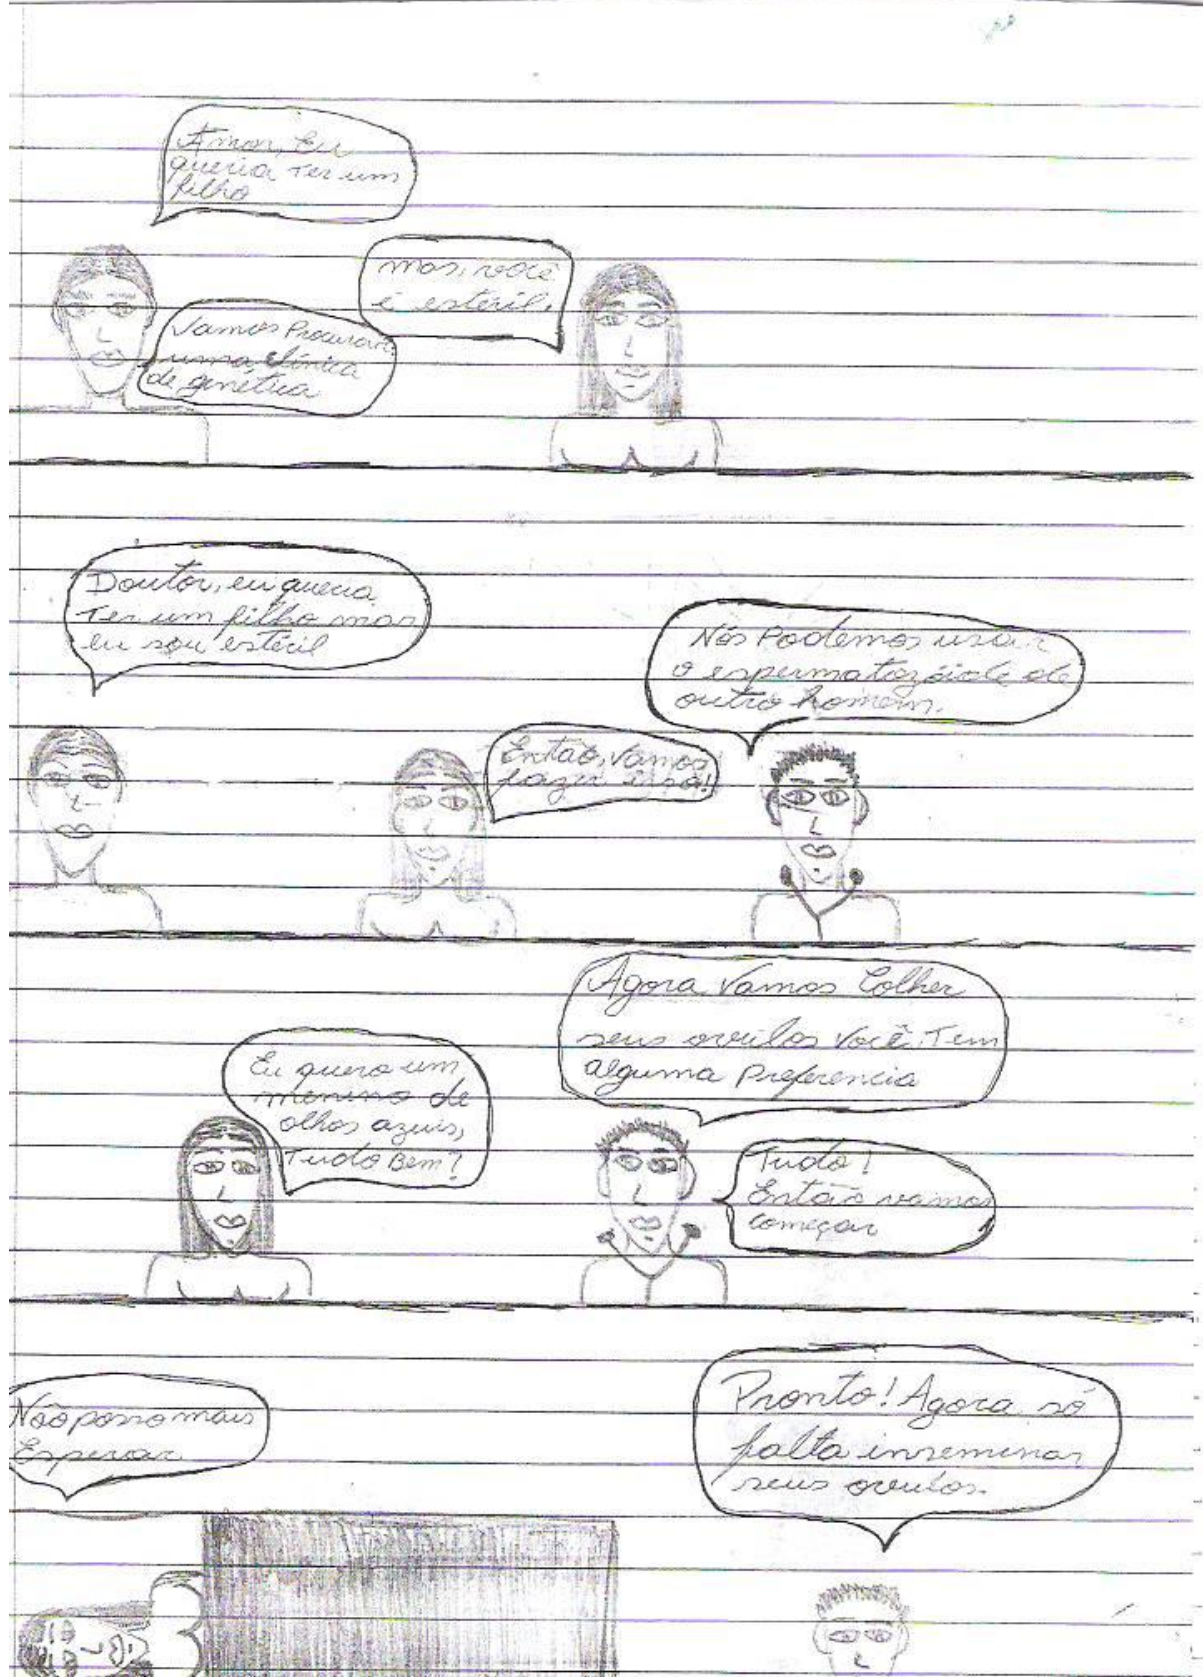 Amor, Eu
queria Ter um
filho
mas, você
é estéril.
Vamos Procurar
uma clínica
de genetica
Doutor, eu queria
Ter um filho mas
eu sou estéril
Nós Podemos usar
o espermatozóide de
outro homem.
Então, vamos
fazer isso!
Agora, Vamos Colher
seus ovulos Você, Tem
alguma Preferencia
Eu quero um
menino de
olhos azuis,
Tudo Bem?
Tudo!
Então vamos
começar
Não posso mais
Esperar
Pronto! Agora só
falta inseminar
seus ovulos.